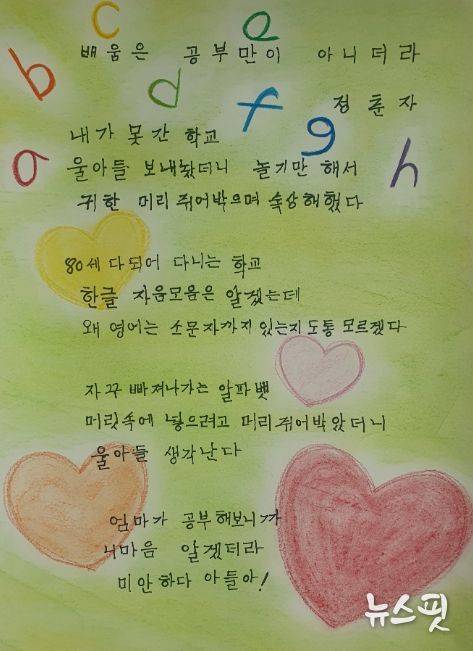 c e
배움은 공부만이 아니더라
b d f
정춘자
g
내가 못간 학교
a h
울아들 보내놨더니 놀기만 해서
귀한 머리 쥐어박으며 속상해했다
80세 다되어 다니는 학교
한글 자음모음은 알겠는데
왜 영어는 소문자까지 있는지 도통 모르겠다
자꾸 빠져나가는 알파벳
머릿속에 넣으려고 머리 쥐어박았더니
울아들 생각난다
엄마가 공부해보니까
니마음 알겠더라
미안하다 아들아!
뉴스핏